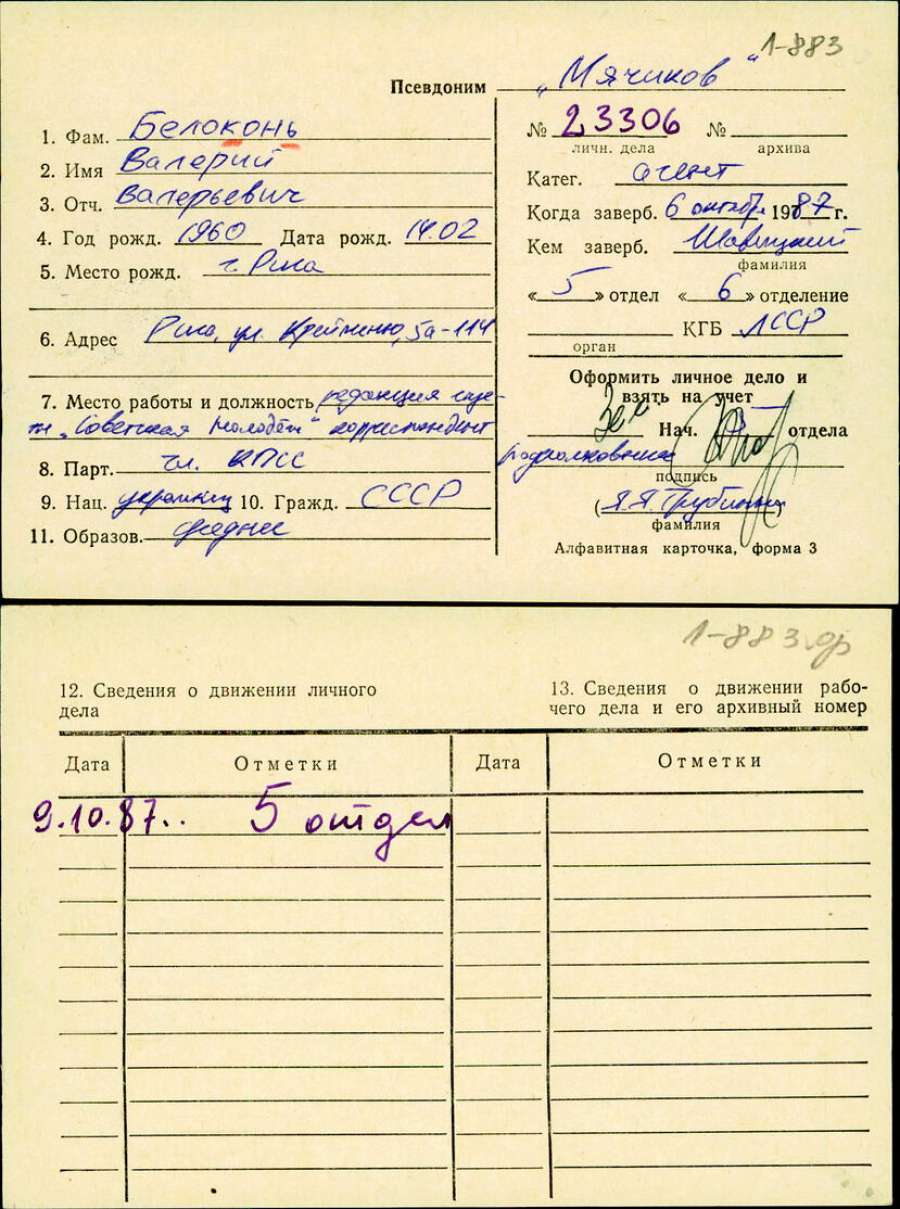 1-883
Псевдоним „Мячиков"
1. Фам. Белоконь
2. Имя Валерий
3. Отч. Валерьевич
4. Год рожд. 1960 Дата рожд. 14.02
5. Место рожд. г. Рига
6. Адрес Рига, ул. 5а-114
7. Место работы и должность редакция газе-
ты „Советская молодёжь" корреспондент
8. Парт. чл. КПСС
9. Нац. украинец 10. Гражд. СССР
11. Образов. среднее
№ 23306 №
личн. дела архива
Катег. агент
Когда заверб. 6 октября 1987 г.
Кем заверб.
фамилия
« 5 » отдел « 6 » отделение
КГБ ЛССР
орган
Оформить личное дело и
взять на учет
Зам. Нач. 5 отдела
подполковник
подпись
фамилия
Алфавитная карточка, форма 3
1-883
12. Сведения о движении личного
дела
13. Сведения о движении рабо-
чего дела и его архивный номер
Дата Отметки Дата Отметки
9.10.87.. 5 отдел